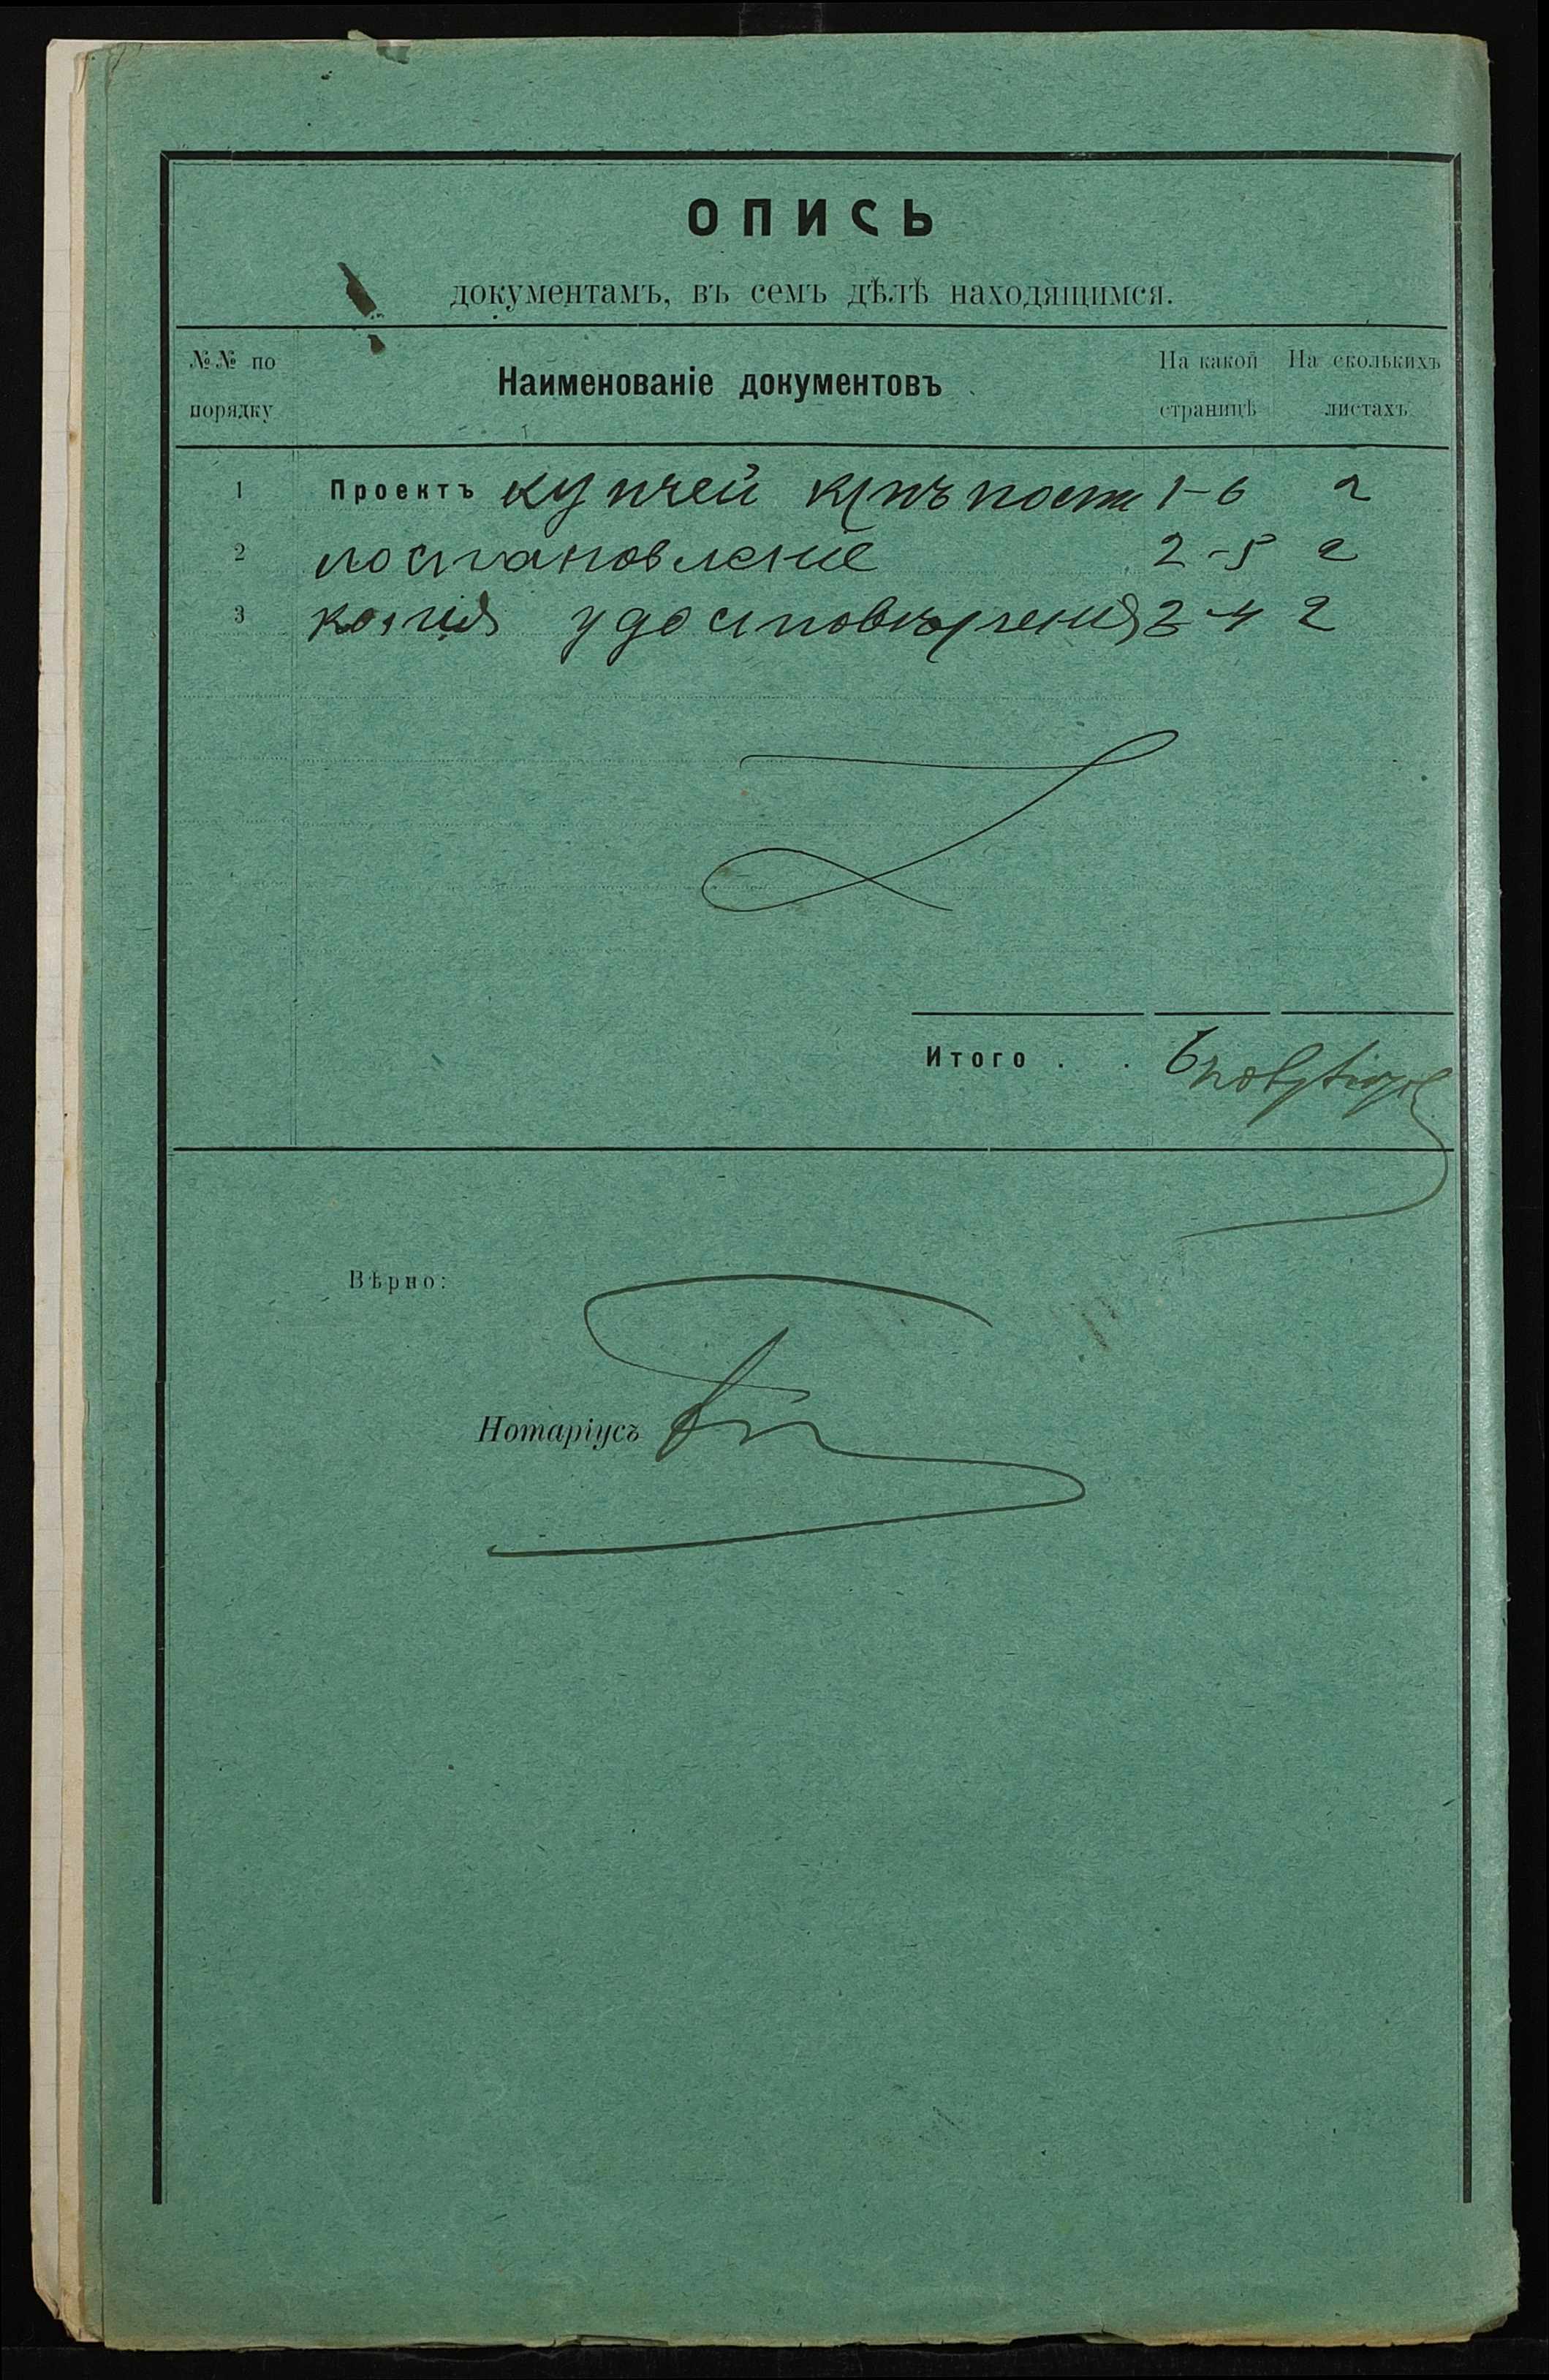 ОПИСЬ
документамъ, въ семъ дѣлѣ находящимся.
№№ по порядку
Наименованіе документовъ
На какой страницѣ
На сколькихъ листахъ
1 Проектъ купчей крѣпости 1-6 2
2 постановленіе 2-5 2
3 копия удостовѣрения 3-4 2
Итого . . 6
Вѣрно:
Нотаріусъ